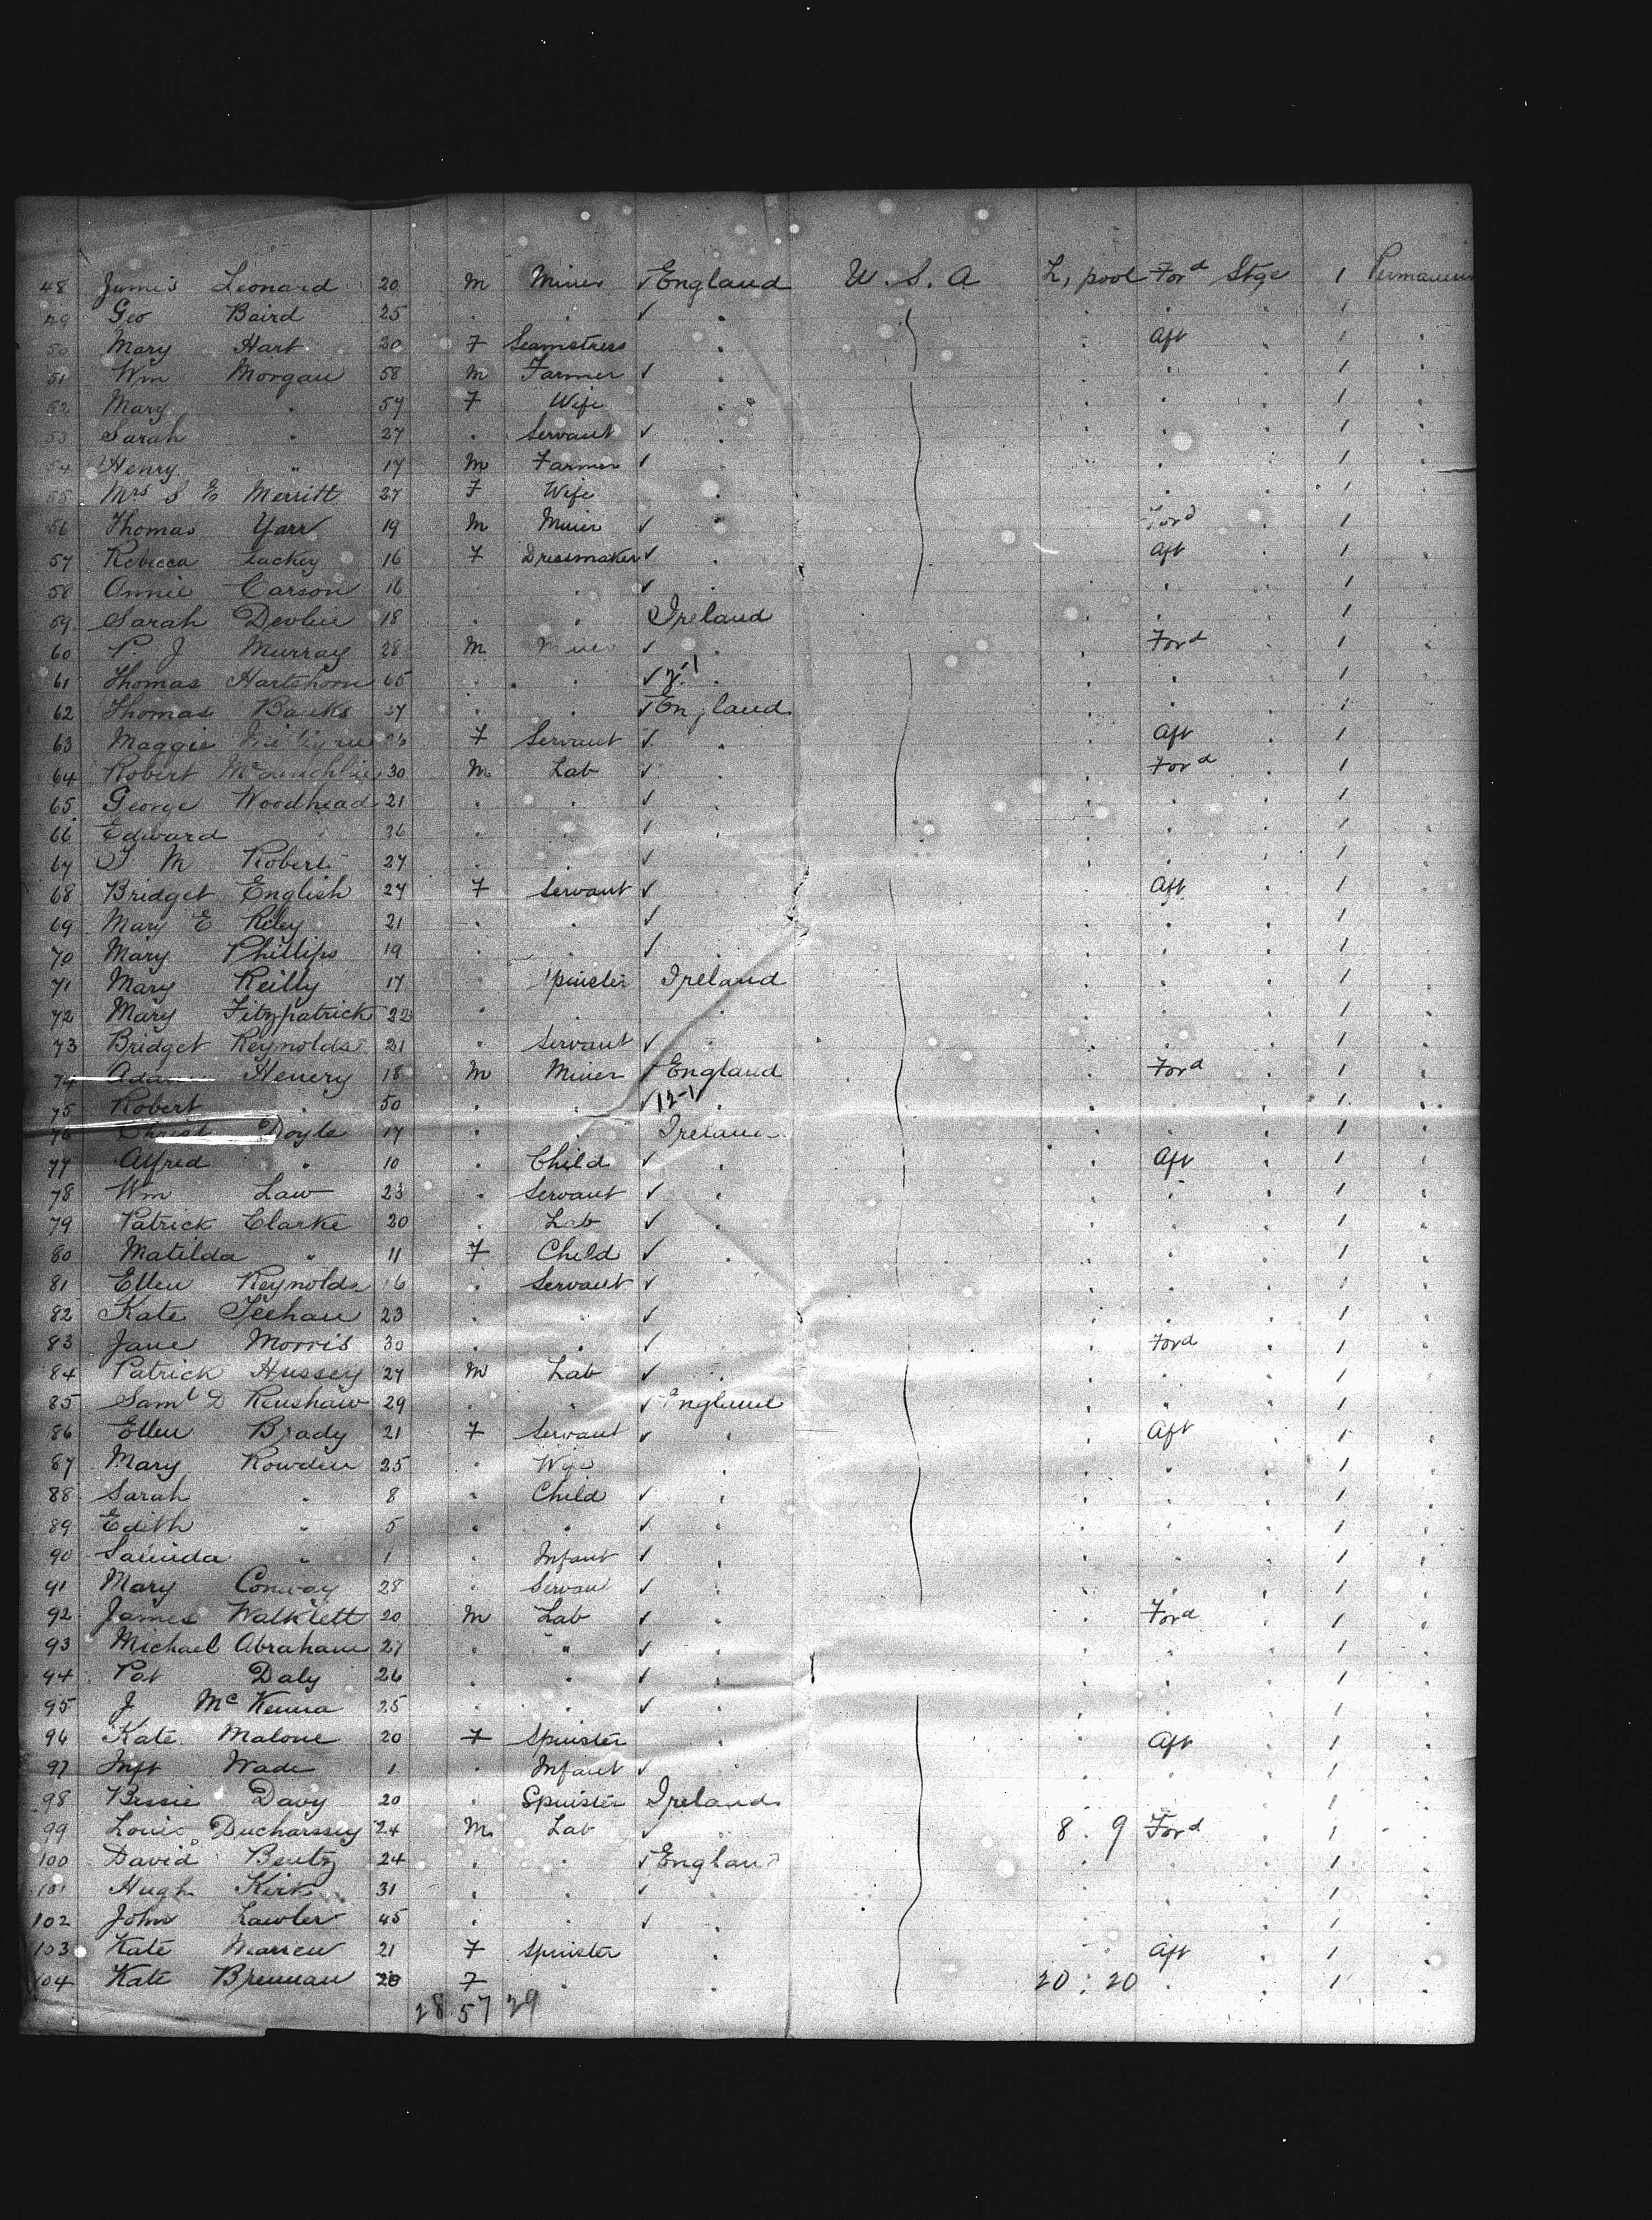 48 James Leonard 20 M Miner ✓ England U. S. A L, pool Ford Stge 1
49 Geo Baird 25 . . ✓ . . . 1
50 Mary Hart 30 F Seamstress . . Aft . 1
51 Wm Morgan 58 M Farmer ✓ . . . 1
52 Mary " 57 F Wife . . . 1
53 Sarah " 27 . Servant ✓ . . . 1
54 Henry " 17 M Farmer ✓ . . 1
55 Mrs S E Merritt 27 F Wife . . 1
56 Thomas Yarr 19 M Miner ✓ . Ford . 1
57 Rebecca Lackey 16 F Dressmaker ✓ . Aft . 1
58 Annie Carson 16 . . ✓ . . 1
59 Sarah Devlin 18 . . Ireland . . 1
60 P. J Murray 28 M Miner ✓ . Ford . 1
61 Thomas Hartshorn 65 . . ✓ . . 1
62 Thomas Banks . . ✓ England . 1
63 Maggie F Servant ✓ . Aft . 1
64 Robert McLouchlin 30 M Lab ✓ . Ford . 1
65 George Woodhead 21 . . ✓ . . 1
66 Edward " 36 . . ✓ . . 1
67 J M Robert 27 . . ✓ . . 1
68 Bridget English 24 F Servant ✓ . Aft . 1
69 Mary E Riley 21 . . ✓ . . 1
70 Mary Phillips 19 . . ✓ . . 1
71 Mary Reilly 17 . Spinster Ireland . . 1
72 Mary Fitzpatrick 22 . . . . 1
73 Bridget Reynolds 21 . Servant ✓ . . 1
74 Adam Henery 18 M Miner ✓ England . Ford . 1
75 Robert " 50 . . ✓ 12-1 . . 1
76 Christ Doyle 17 . . Ireland . . 1
77 Alfred " 10 . Child ✓ . Aft . 1
78 Wm Law 23 . Servant ✓ . . 1
79 Patrick Clarke 20 . Lab ✓ . . 1
80 Matilda " 11 F Child ✓ . . 1
81 Ellen Reynolds 16 . Servant ✓ . . 1
82 Kate Teehan 23 . . ✓ . . 1
83 Jane Morris 30 . . ✓ . Ford . 1
84 Patrick Hussey 27 M Lab ✓ . . 1
85 Saml D Renshaw 29 . . ✓ England . . 1
86 Ellen Brady 21 F Servant ✓ . Aft . 1
87 Mary Rowden 25 . Wife . . 1
88 Sarah " 8 . Child ✓ . . 1
89 Edith " 5 . . ✓ . . 1
90 " 1 . Infant ✓ . . 1
91 Mary Conway 28 . Servan ✓ . . 1
92 James Walklett 20 M Lab ✓ . Ford . 1
93 Michael Abraham 27 . " ✓ . . 1
94 Pat Daly 26 . . ✓ . . 1
95 J McKenna 25 . . ✓ . . 1
96 Kate Malone 20 F Spinster . Aft . 1
97 Inft Wade 1 . Infant ✓ . . 1
98 Bessie Davy 20 . Spinster Ireland . . 1
99 Louic Ducharssey 24 M Lab ✓ 8 . 9 Ford . 1
100 David Bentz 24 . . ✓ England . . 1
101 Hugh Kirk 31 . . ✓ . . 1
102 John Lawler 45 . . ✓ . . 1
103 Kate Warren 21 F Spinster . Aft . 1
104 Kate Brennan 20 F . . 20 : 20 . 1
28 57 29